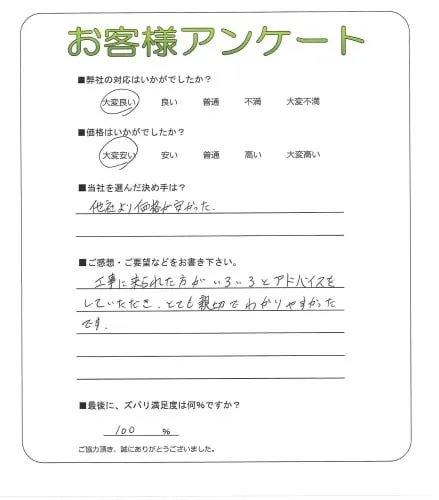 お客様アンケート
■弊社の対応はいかがでしたか?
大変良い 良い 普通 不満 大変不満
■価格はいかがでしたか?
大変安い 安い 普通 高い 大変高い
■当社を選んだ決め手は?
他社より価格が安かった.
■ご感想・ご要望などをお書き下さい。
工事に来られた方がいろいろとアドバイスを
していただき、とても親切でわかりやすかった
です.
■最後に、ズバリ満足度は何%ですか?
100 %
ご協力頂き、誠にありがとうございました。